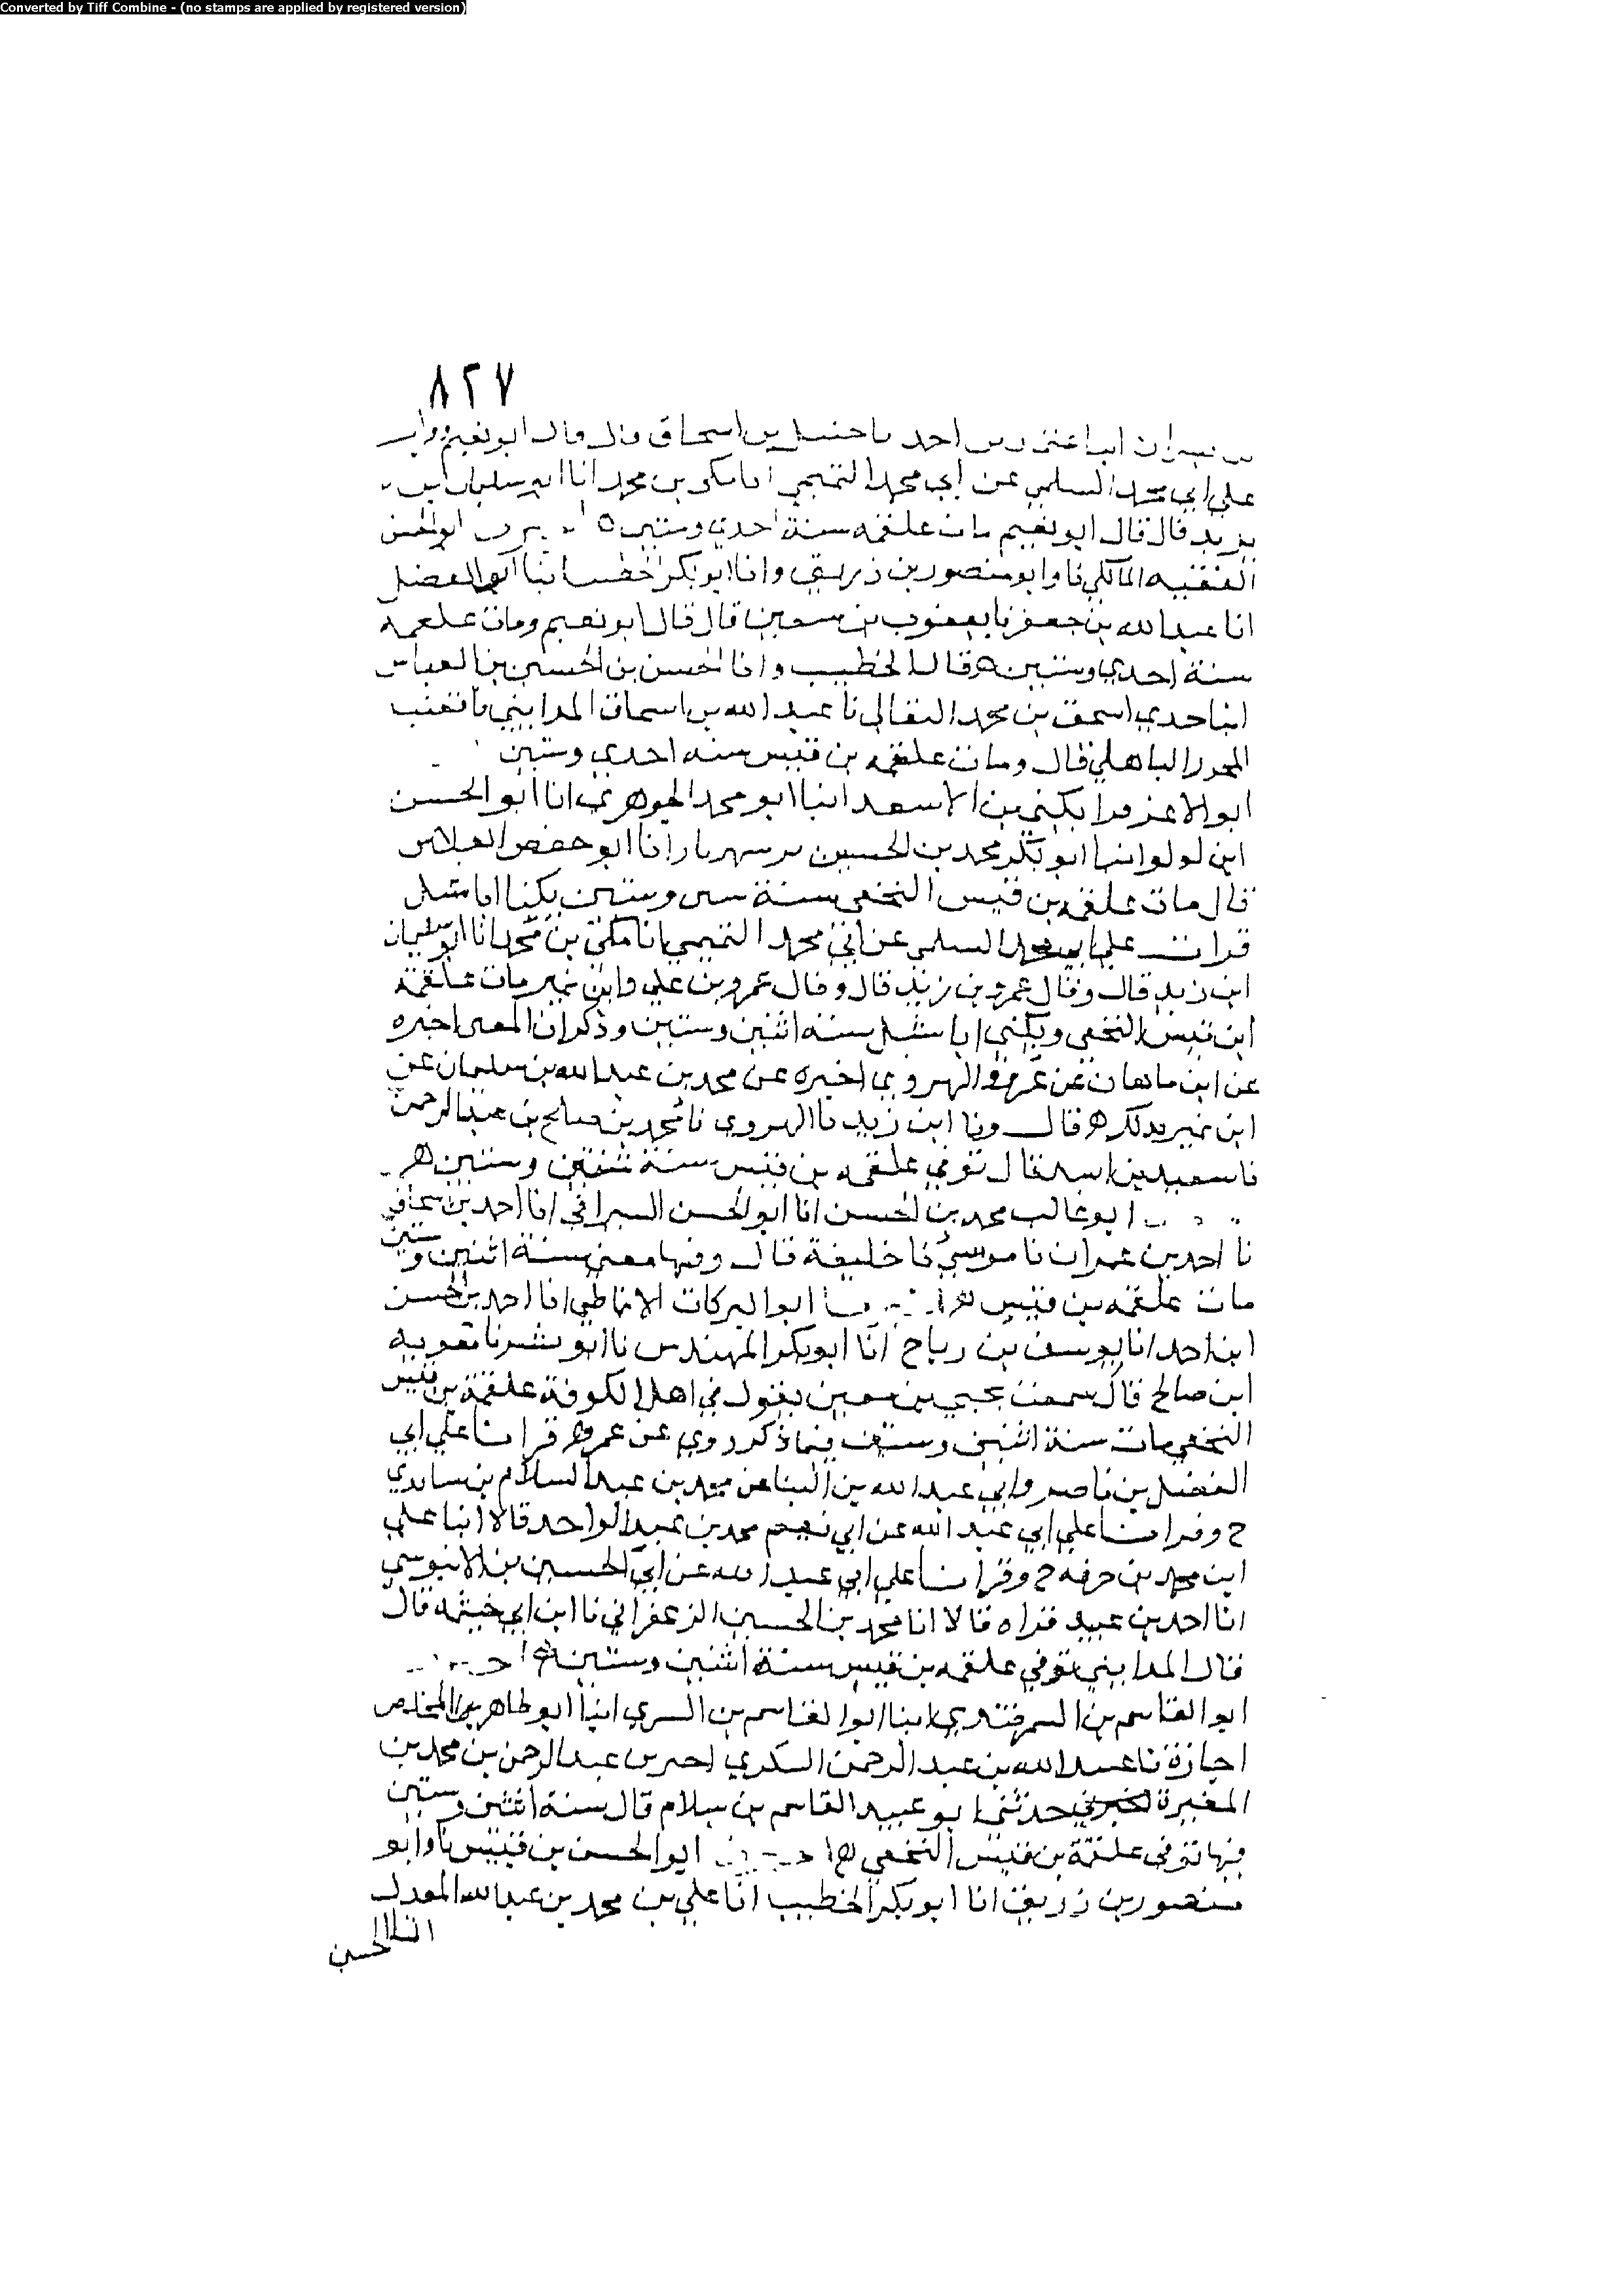 Converted by Tiff Combine - (no stamps are applied by registered version)
٨٢٧
بن احمد نا حنبل بن اسحاق قال قال ابو نعيم
علي ابي محمد السلمي عن ابي محمد التميمي انا مكي بن محمد انا ابو سليمان بن
يزيد قال قال ابو نعيم مات علقمة سنة احدي وستين ابو الحسن
الفقيه المالكي نا وابو منصور بن زريق وانا ابو بكر الخطيب انبا ابو الفضل
انا عبد الله بن جعفر نا يعقوب بن سفين قال قال ابو نعيم ومات علقمه
سنة احدي وستين ه قال الخطيب وانا الحسن بن الحسين بن العباس
انبا جدي اسحق بن محمد النعالي نا عبد الله بن اسحاق المدايني نا قعنب
المحرر الباهلي قال ومات علقمه بن قيس سنه احدي وستين
ابو الاعز قراتكين بن الاسعد انبا ابو محمد الجوهري انا ابو الحسن
ابن لولو انبا ابو بكر محمد بن الحسين بن شهريار انا ابو حفص الفلاس
قال مات علقمه بن قيس النخعي سنة وستين يكنا ابا شبل
قرات علي ابي محمد السلمي عن ابي محمد التميمي انا مكي بن محمد انا ابو سليمان
ابن زيد قال وقال عمرو بن زيد قال وقال عمرو بن علي وابن نمير مات علقمة
ابن قيس النخعي ويكني ابا شبل سنه اثنين وستين وذكر ان اخبره
عن ابن ماهان عن عمرو والهروي اخبره عن محمد بن عبد الله بن سليمان عن
ابن نمير بذلك ه قال ونا ابن زيد نا الهروي نا محمد بن صالح بن عبد الرحمن
نا سعيد بن اسد قال توفي علقمه بن قيس سنة ثنتين وستين ه
ابو غالب محمد بن الحسن انا ابو الحسن السيرافي انا احمد بن اسحاق
نا احمد بن عمران نا موسي نا خليفة قال وفيها معني سنة اثنين وستين
مات علقمه بن قيس ه ابو البركات الانماطي انا احمد بن الحسن
ابن احمد انا يوسف بن رباح انا ابو بكر المهندس نا ابو بشر نا معويه
ابن صالح قال سمعت يحيي بن معين يقول في اهل الكوفة علقمة بن قيس
النخعي مات سنة اثنين وستين فيما ذكر روي عن عمر ه قرانا علي ابي
الفضل بن ناصر وابي عبد الله بن البنا عن محمد بن عبد السلام بن
ح وقرانا علي ابي عبد الله عن ابي نعيم محمد بن عبد الواحد قالا انبا علي
ابن محمد بن خزفه ح وقرانا علي ابي عبد الله عن ابي الحسين بن الابنوسي
انا احمد بن عبيد قراه قالا انا محمد بن الحسين الزعفراني نا ابن ابي خيثمه قال
قال المدايني توفي علقمه بن قيس سنة اثنين وستين ه
ابو القاسم بن السمرقندي انبا ابو القاسم بن البسري انبا ابو طاهر بن المخلص
اجازة نا عبيد الله بن عبد الرحمن السكري عبد الرحمن بن محمد بن
المغيرة حدثني ابو عبيد القاسم بن سلام قال سنة اثنين وستين
فيها توفي علقمة بن قيس النخعي ه ابو الحسن بن قبيس نا وابو
منصور بن زريق انا ابو بكر الخطيب انا علي بن محمد بن عبد الله المعدل
انبا الحسين